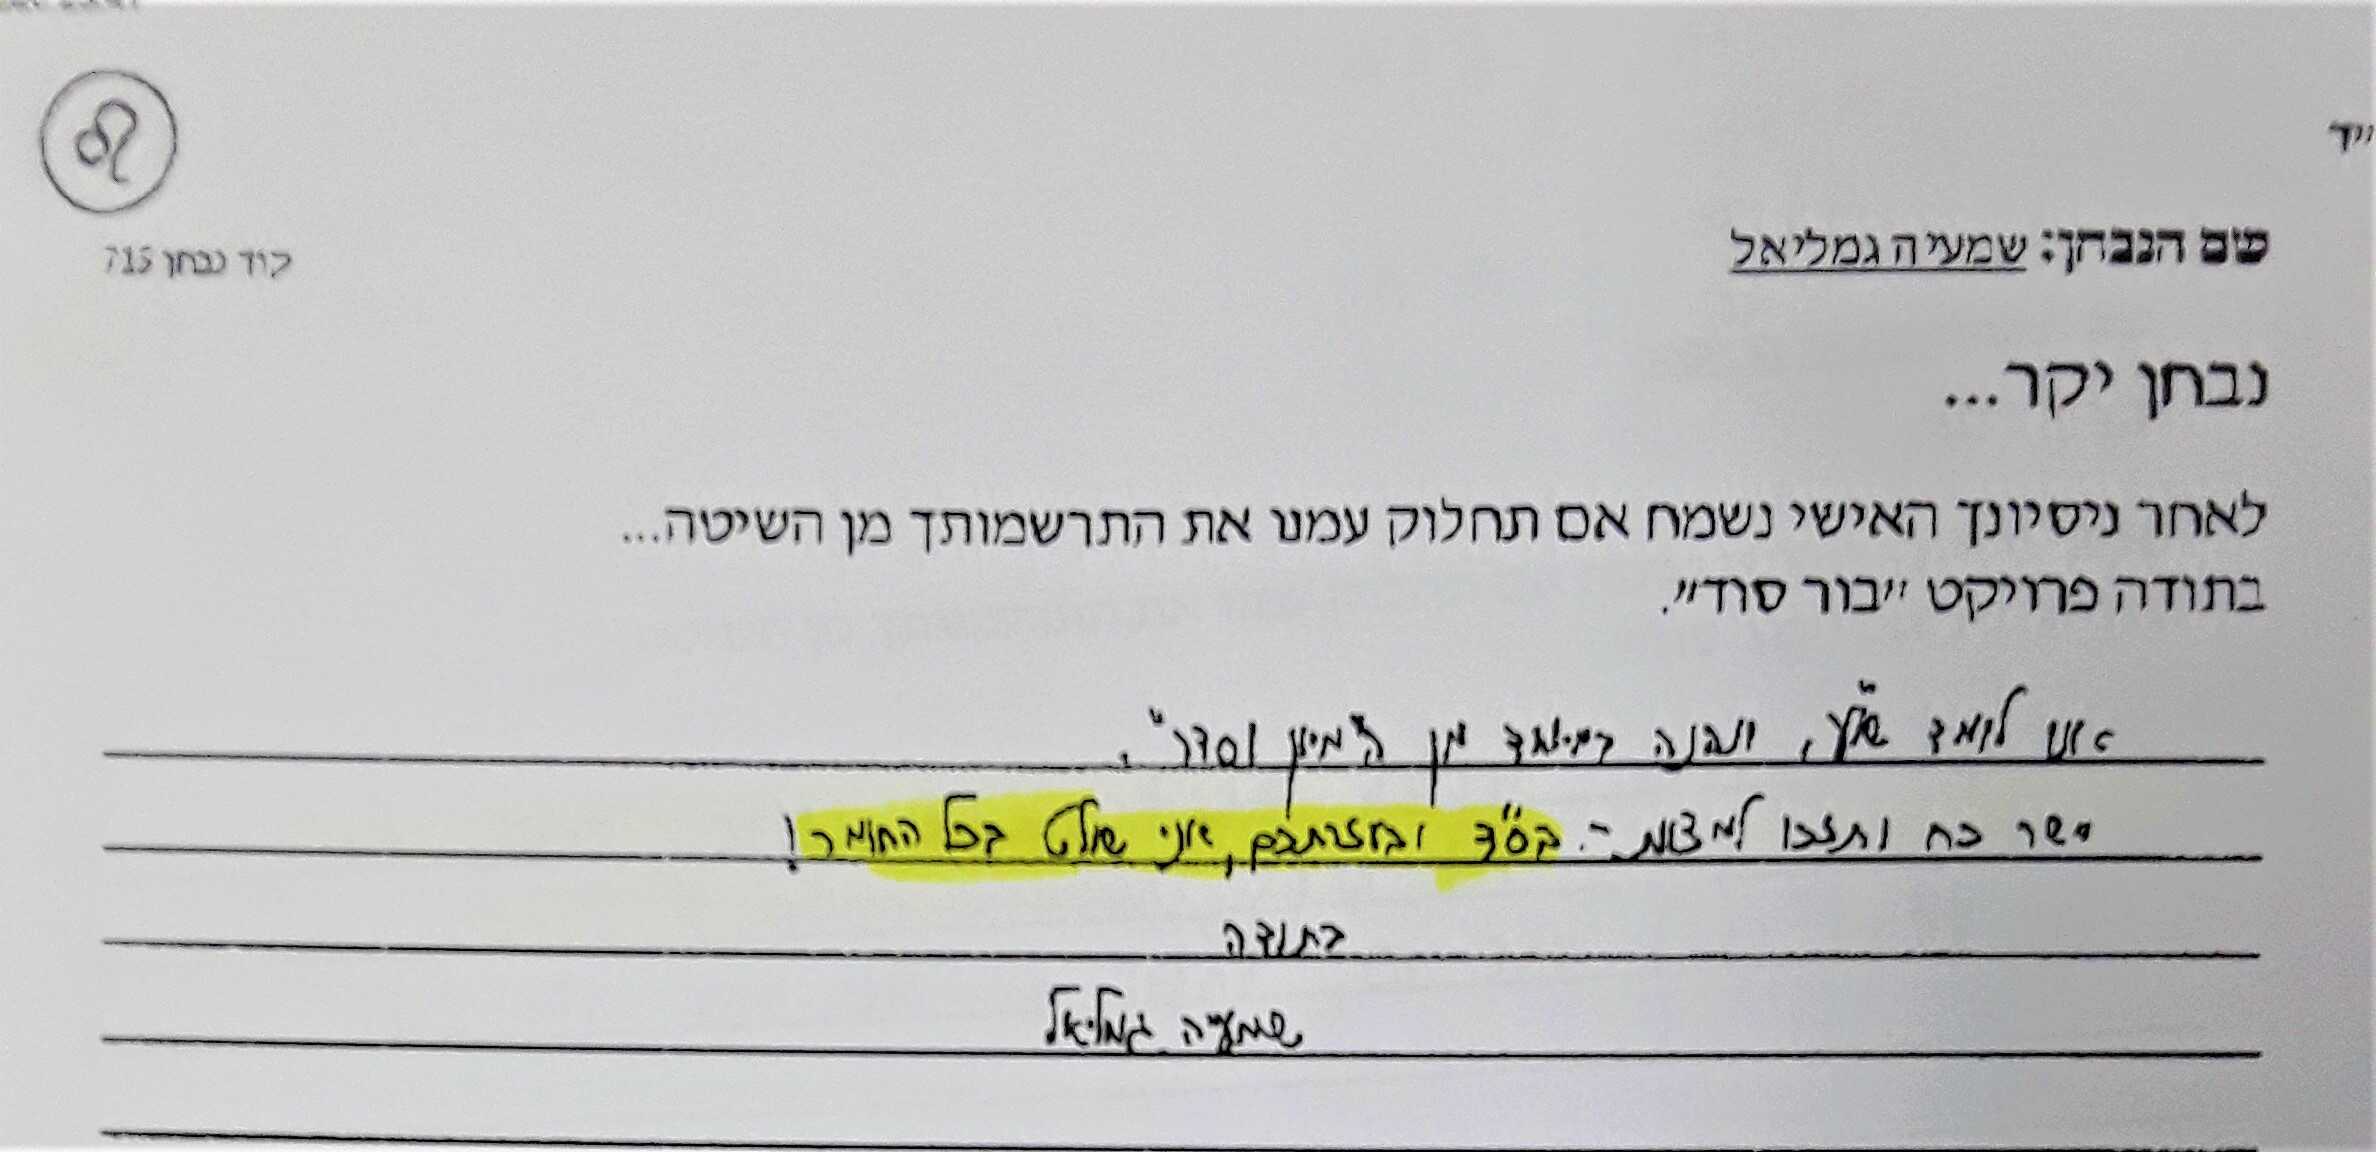 קוד נבחן 715
שם הנבחן: שמעיה גמליאל
נבחן יקר...
לאחר ניסיונך האישי נשמח אם תחלוק עמנו את התרשמותך מן השיטה...
בתודה פרויקט "בור סוד".
אני לומד ונהנה במיוחד מן וסדר".
ישר כח ותזכו למצוות -. בס"ד ובעזרתכם, אני שולט בכל החומר!
בתודה
שמעיה גמליאל